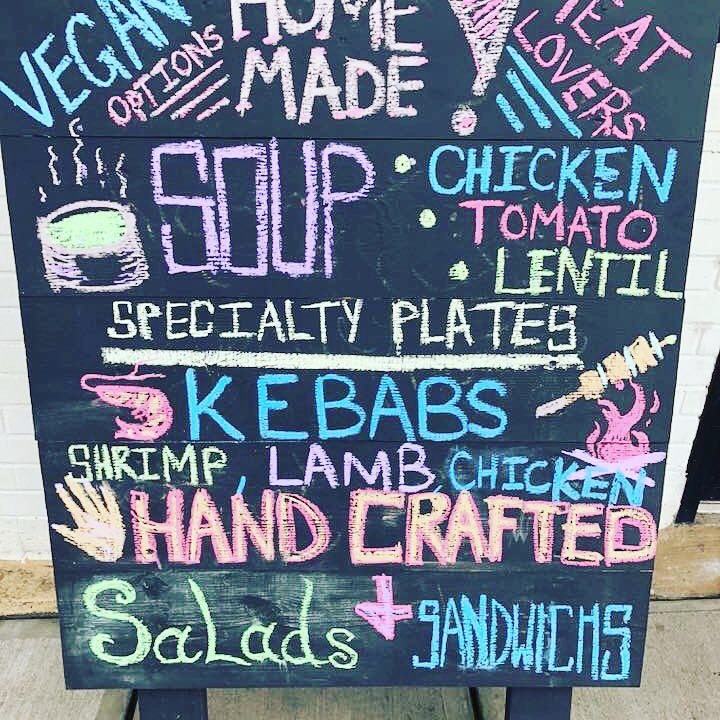 VEGAN OPTIONS
HOME MADE
MEAT LOVERS
SOUP
• CHICKEN
• TOMATO
• LENTIL
SPECIALTY PLATES
KEBABS
SHRIMP, LAMB, CHICKEN
HAND CRAFTED
Salads + SANDWICHS